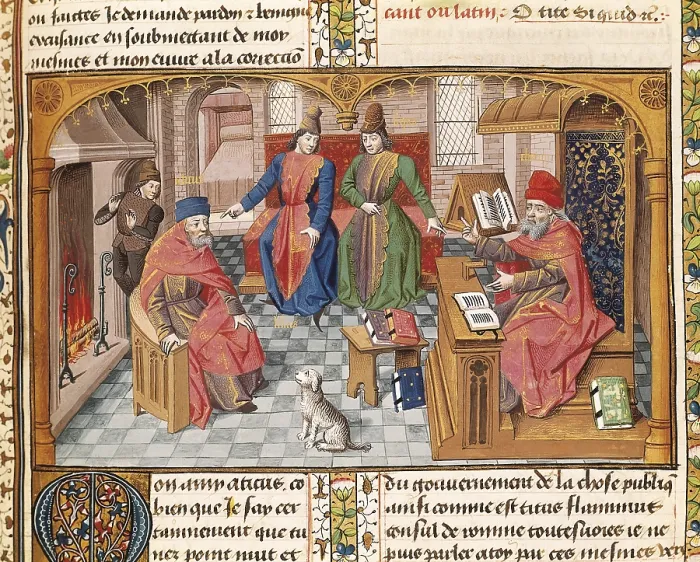 ou faictes Je demande pardon & benigne
excusance en soubmectant de moy
mesmes et mon euure a la correctiō
cant ou latin .: O tite Si quid &c.:
on amy aticus, co
bien que Je say cer
tainnement que tu
nez point nuit et
du gouuernement de la chose publiq̄
ainsi comme est titus flaminius
consul de romme toutesuoies ie ne
puis parler a toy par ces mesmes